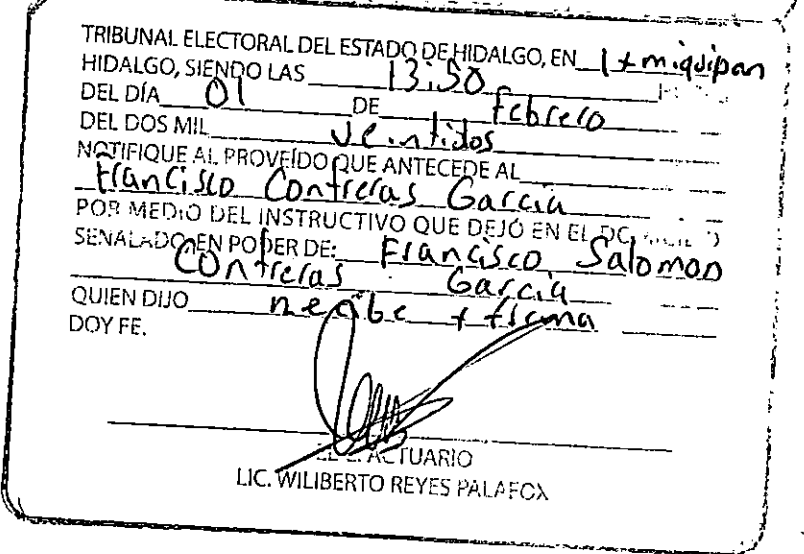 TRIBUNAL ELECTORAL DEL ESTADO DE HIDALGO, EN Ixmiquipan
HIDALGO, SIENDO LAS 13:50
DEL DÍA 01 DE Febrero
DEL DOS MIL veintidos
NOTIFIQUE AL PROVEÍDO QUE ANTECEDE AL
Francisco Contreras Garcia
POR MEDIO DEL INSTRUCTIVO QUE DEJÓ EN EL
SEÑALADO EN PODER DE: Francisco Salomon
Contreras Garcia
QUIEN DIJO recibe y firma
DOY FE.
ACTUARIO
LIC. WILIBERTO REYES PALAFOX